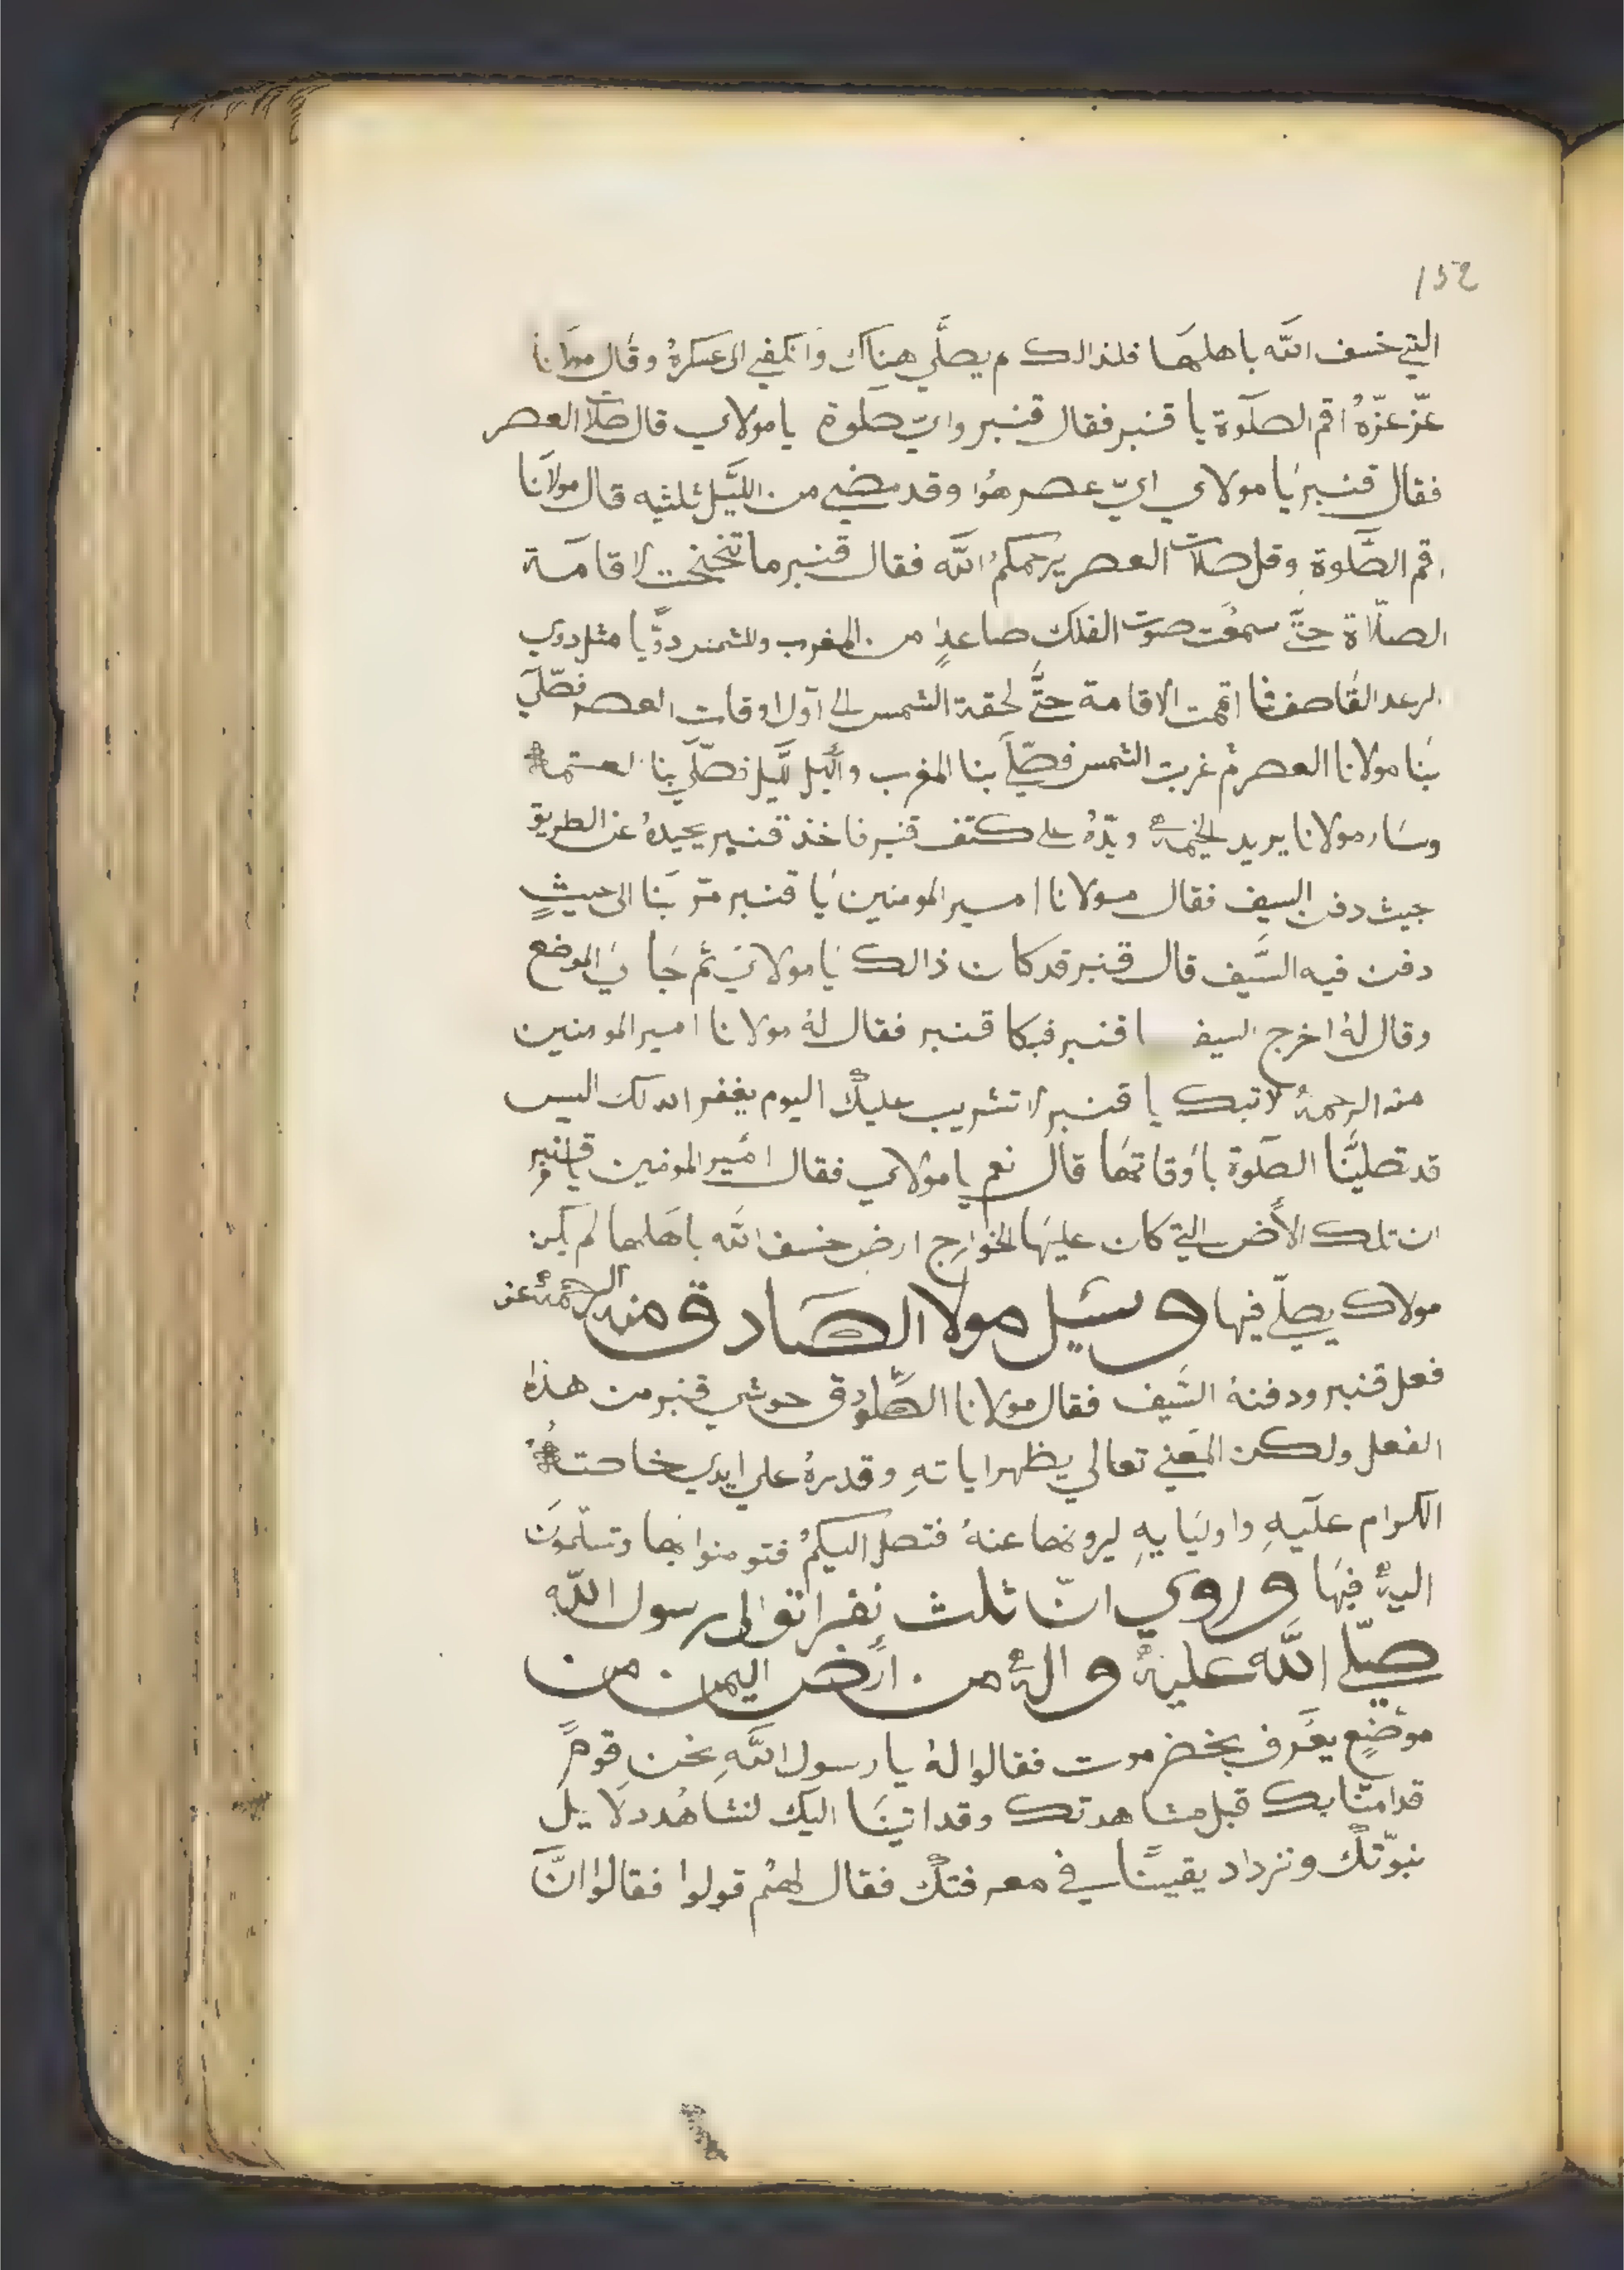 152
التي خسف الله باهلها فلذالك م يصلّي هناك وانكفي الى عسكرهُ وقال مولانا
عزّ عزّهُ اقم الصلوة يا قنبر فقال قنبر وايّ صلوة يا مولاي قال صلاة العصر
فقال قنبر يا مولاي ايّ عصر هوا وقد مضي من الليّل ثلثيه قال مولانا
اقم الصّلوة وقل صلات العصر يرحمكمُ الله فقال قنبر ما تنخنحت لاقامة
الصلاة حتَّي سمعت صوت الفلك صاعدٍا من المغرب وللشمس دوّيا مثل دوي
الرعد القاصف فا اقمت الاقامة حتَّي لحقة الشمس الى اول اوقات العصر فصّلي
بنا مولانا العصر ثم غربت الشمس فصّلي بنا المغرب والّيل لّيل فصّلي بنا العتمة
وسار مولانا يريد الخيمهُ ويدّهُ على كتف قنبر فاخذ قنبر يحيدهُ عن الطريق
حيث دفن السيف فقال مولانا امير المومنين يا قنبر مرّ بنا الى حيثٍ
دفن فيه السّيف قال قنبر قد كان ذالك يا مولاي ثم جا في الموضع
وقال لهُ اخرج السيف ا قنبر فبكا قنبر فقال لهُ مولانا امير المومنين
منه الرحمهُ لا تبك يا قنبر لا تثريب عليك اليوم يغفر الله لك اليس
قد تصليّنا الصلوة باوقاتها قال نعم يا مولاي فقال امير المومنين يا قنبر
ان تلك الأض التي كان عليها الخوارج ارض خسف الله باهلها لم يكن
مولاك يصلّي فيها وسَيل مولا الصَادق منه الرحمهُ عن
فعل قنبر ودفنهُ السّيف فقال مولانا الصّادق حوشي قنبر من هذا
الفعل ولكن المعني تعالي يظهر اياتهِ وقدرهُ علي ايدي خاصتهُ
الكرام عليهِ واوليَايهِ ليرونها عنهُ فتصل اليكمُ فتومنوا بها وتسلّمون
اليهُ فيها وروي انّ ثلث نفر اتوا الى رسول اللّه
صلّي اللّه عليهُ والهُ من ارَض اليمن من
موضعٍ يعَرف بحضر موت فقالوا لهُ يا رسول اللّهِ نحن قومً
قد امنّا بك قبل مشاهدتك وقد اتينَا اليك لنشاهُد دلايل
نبوّتكُ ونزداد يقينًا في معرفتكُ فقال لهُم قولوا فقالوا انَّ